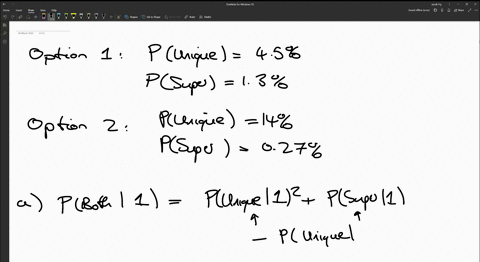 Option 1: P(Unique) = 4.5%
P(Super) = 1.3%
Option 2: P(Unique) = 14%
P(Super) = 0.27%
a) P(Both | 1) = P(Unique | 1)² + P(Super | 1)
- P(Unique |